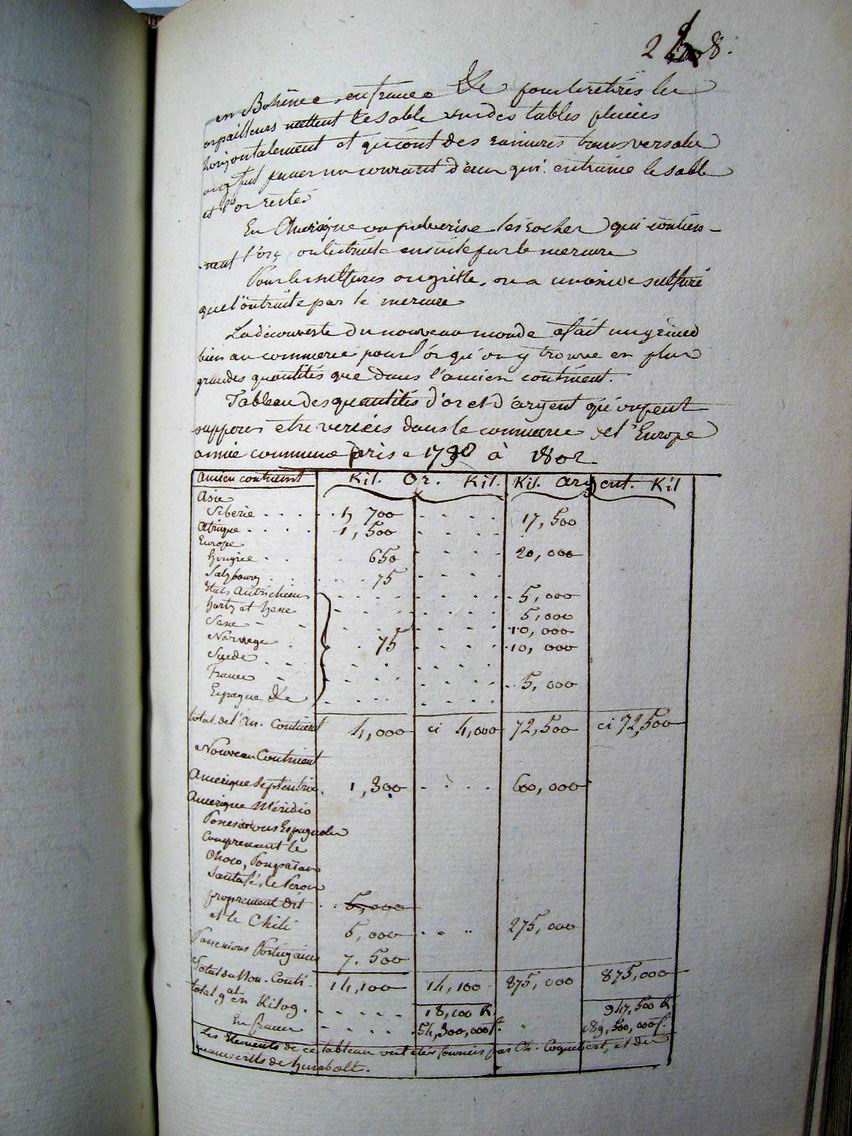 288.
en Bohême en france &c pour le retirer les
orpailleurs mettent le sable sur des tables
horizontalement et qui ont des rainures transversales
on y fait passer un courant d'eau qui entraine le sable
et l'or reste
En Amerique on pulverise les rocher qui contien-
-nent l'or, on l'extrait ensuite par le mercure
Pour les sulfures on grille, on a
que l'on traite par le mercure
La découverte du nouveau monde a fait un grand
bien au commerce pour l'or qu'on y trouve en plus
grandes quantités que dans l'ancien continent.
Tableau des quantités d'or et d'argent qu'on peut
supposer etre versées dans le commerce de l'Europe
année commune prise 1790 à 1802
Ancien continent Kil. Or. Kil. Kil. Argent. Kil
Asie
Siberie 1, 700 17, 500
Afrique 1, 500
Europe
Hongrie 650 20, 000
Salzbourg 75
Etats Autrichiens 5, 000
hartz et hesse 5, 000
Saxe 10, 000
Norwege 75 10, 000
Suede
France 5, 000
Espagne &c
total de l'An. Continent 4, 000 ci 4,000 72,500 ci 72,500
Nouveau Continent
Amerique Septentrio. 1, 300 600, 000
Amerique Méridio
Possessions Espagnoles
Comprenant le
Choco, Popayan
Santafé, le Perou
proprement dit 5,000
et le Chili 5, 000 275, 000
Possessions Portugaises 7. 500
Total du Nou. Conti. 14,100 14, 100 875, 000 875,000
total gal en Kilog. 18,100 K 947,500 K
En francs 54,300,000 f. 189, 500,000 f.
Les Elements de ce tableau ont été fournis par Ch. Coquebert, et des
manuscrits de Humbolt.